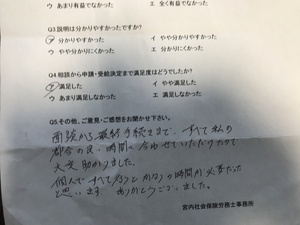 ウ あまり有益でなかった　エ 全く有益でなかった
Q3.説明は分かりやすかったですか？
ア 分かりやすかった　イ やや分かりやすかった
ウ やや分かりにくかった　エ 分かりにくかった
Q4.相談から申請・受給決定まで満足度はどうでしたか？
ア 満足した　イ やや満足した
ウ あまり満足しなかった　エ 満足しなかった
Q5.その他、ご意見・ご感想をお聞かせ下さい。
面談から最終手続きまで、すべて私の
都合の良い時間に合わせていただけたので
大変助かりました。
個人ですべてやるとかなりの時間が必要だった
と思います。ありがとうございました。
宮内社会保険労務士事務所